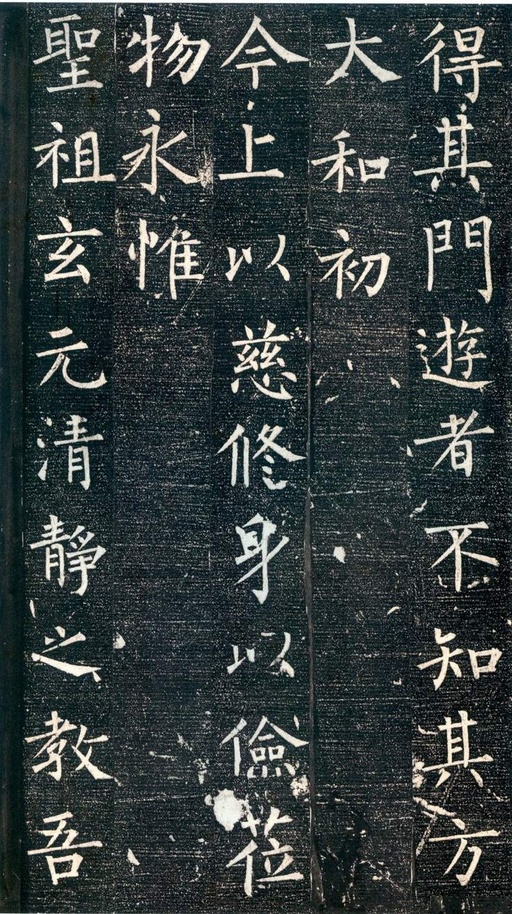 得其門遊者不知其方
大和初
今上以慈修身以儉莅
物永惟
聖祖玄元清靜之教吾